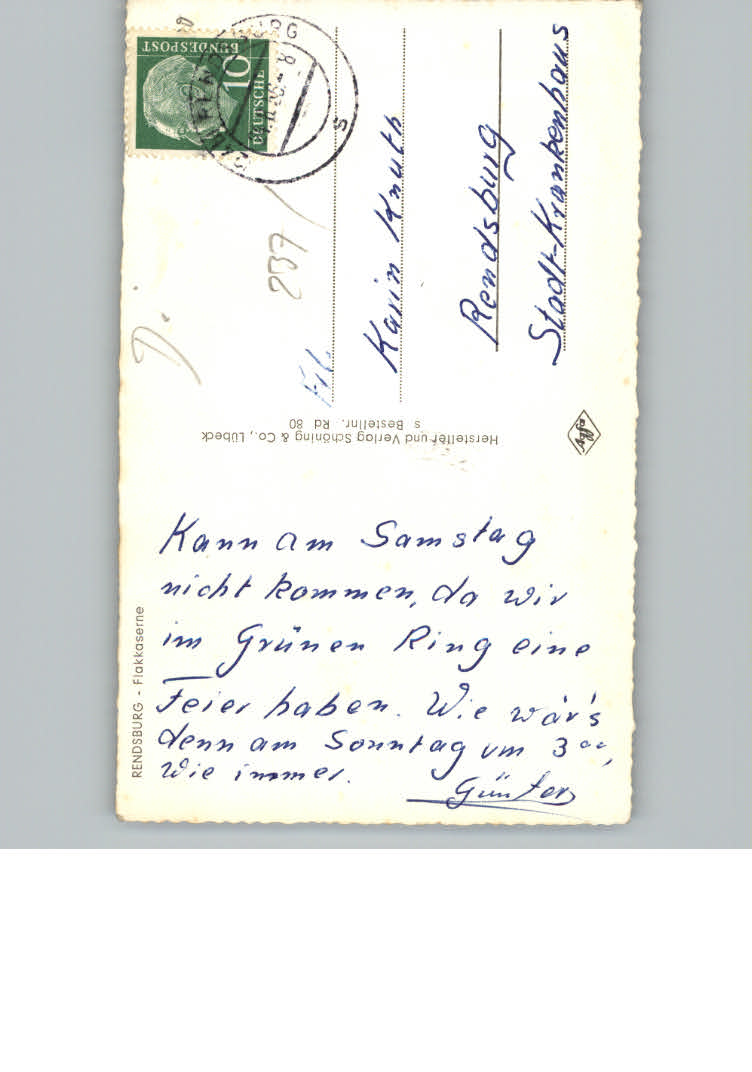 Kann am Samstag
nicht kommen, da wir
im Grünen Ring eine
Feier haben. Wie wär's
denn am Sonntag um 3⁰⁰,
Wie immer.
Günter
RENDSBURG - Flakkaserne
Hersteller und Verlag Schöning & Co., Lübeck
s Bestellnr. Rd 80
Agfa
Frl.
Karin Knuth
Rendsburg
Stadt-Krankenhaus
D.
237/
DEUTSCHE
BUNDESPOST
10
s